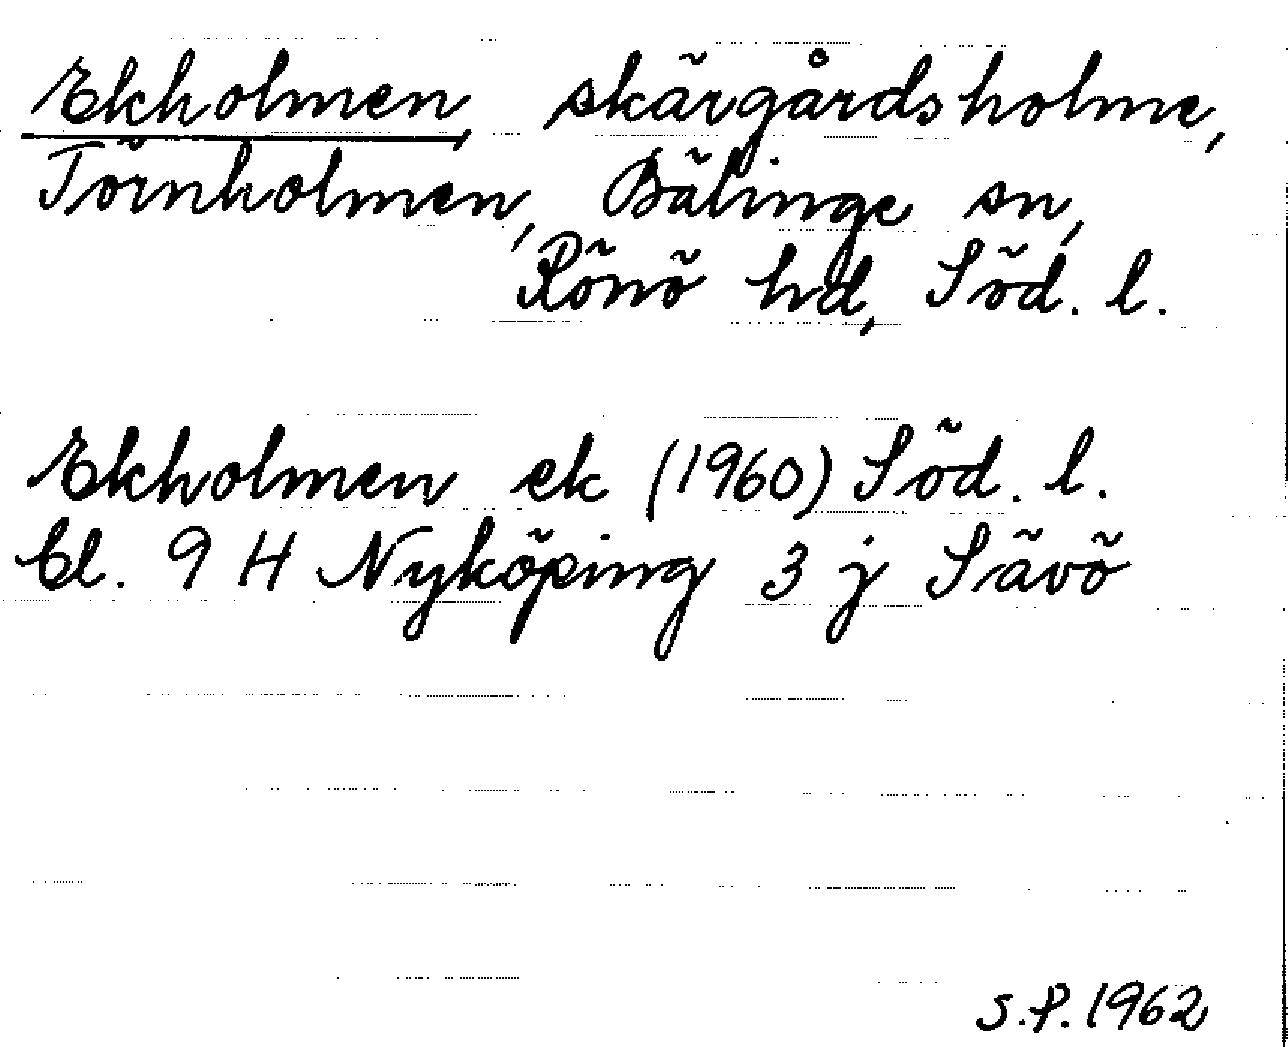 Ekholmen, skärgårdsholme,
Törnholmen, Bälinge sn,
Rönö hd, Söd. l.
Ekholmen ek (1960) Söd. l.
Bl. 9 H Nyköping 3 j Sävö
S.P. 1962